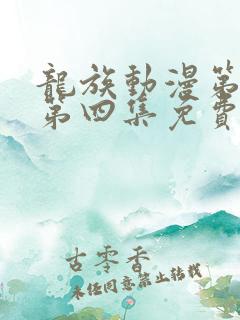 龍族動漫第
第四集免費
古零香
未任同意禁止轉載